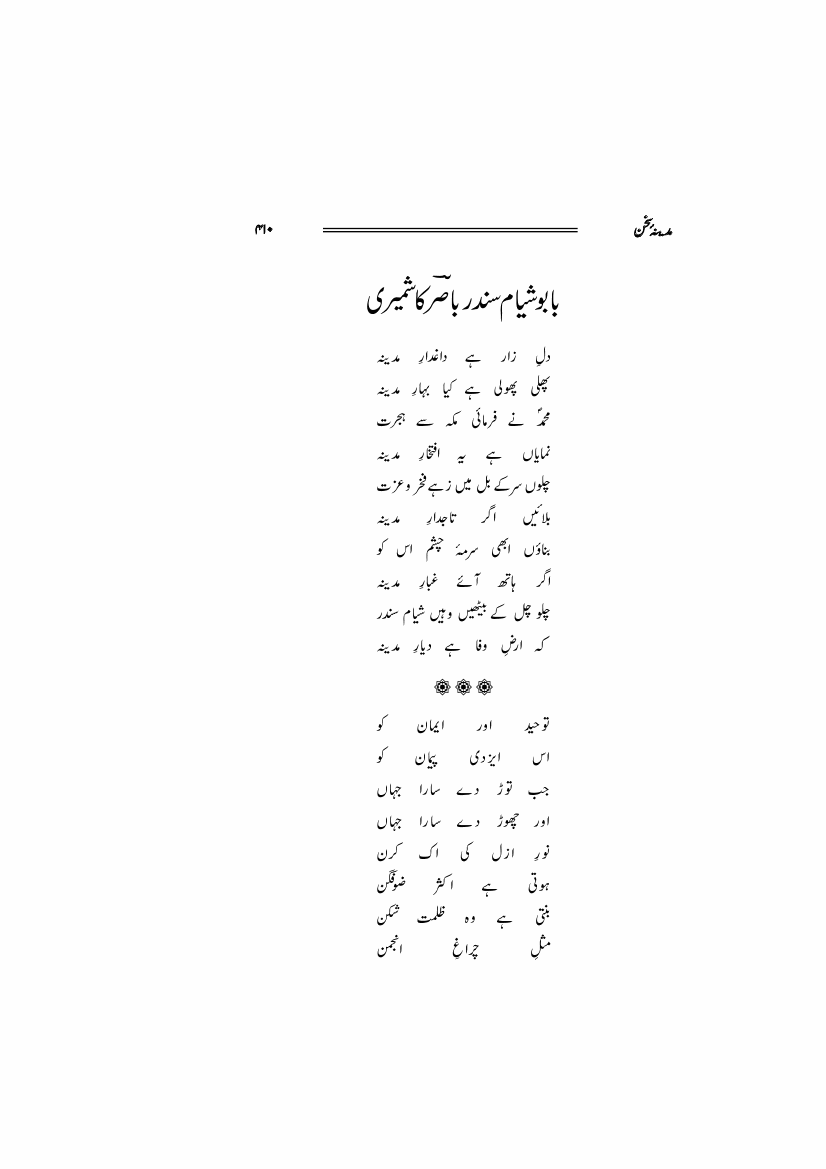 مدینۂ سخن ۴۱۰
بابو شیام سندر باصرؔ کاشمیری
دلِ زار ہے داغدارِ مدینہ
پھلی پھولی ہے کیا بہارِ مدینہ
محمدؐ نے فرمائی مکہ سے ہجرت
نمایاں ہے یہ افتخارِ مدینہ
چلوں سر کے بل میں زہے فخر و عزت
بلائیں اگر تاجدارِ مدینہ
بناؤں ابھی سرمۂ چشم اس کو
اگر ہاتھ آئے غبارِ مدینہ
چلو چل کے بیٹھیں وہیں شیام سندر
کہ ارضِ وفا ہے دیارِ مدینہ
توحید اور ایمان کو
اس ایزدی پیمان کو
جب توڑ دے سارا جہاں
اور چھوڑ دے سارا جہاں
نورِ ازل کی اک کرن
ہوتی ہے اکثر ضوفگن
بنتی ہے وہ ظلمت شکن
مثلِ چراغِ انجمن